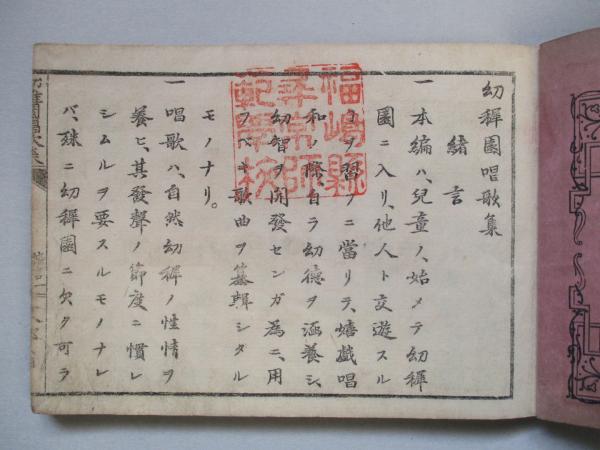 幼稺園唱歌集
緒言
一 本編ハ、兒童ノ、始メテ幼稺
園ニ入リ、他人ト交遊スル
コヲ習フニ當リテ、嬉戯唱
和ノ際、自ラ幼徳ヲ涵養シ、
幼智ヲ開發センガ為ニ、用
フベキ歌曲ヲ纂輯シタル
モノナリ。
一 唱歌ハ、自然幼稺ノ性情ヲ
養ヒ、其發聲ノ節度ニ慣レ
シムルヲ要スルモノナレ
バ、殊ニ幼稺園ニ欠ク可ラ
福嶋縣
尋常師
範學校